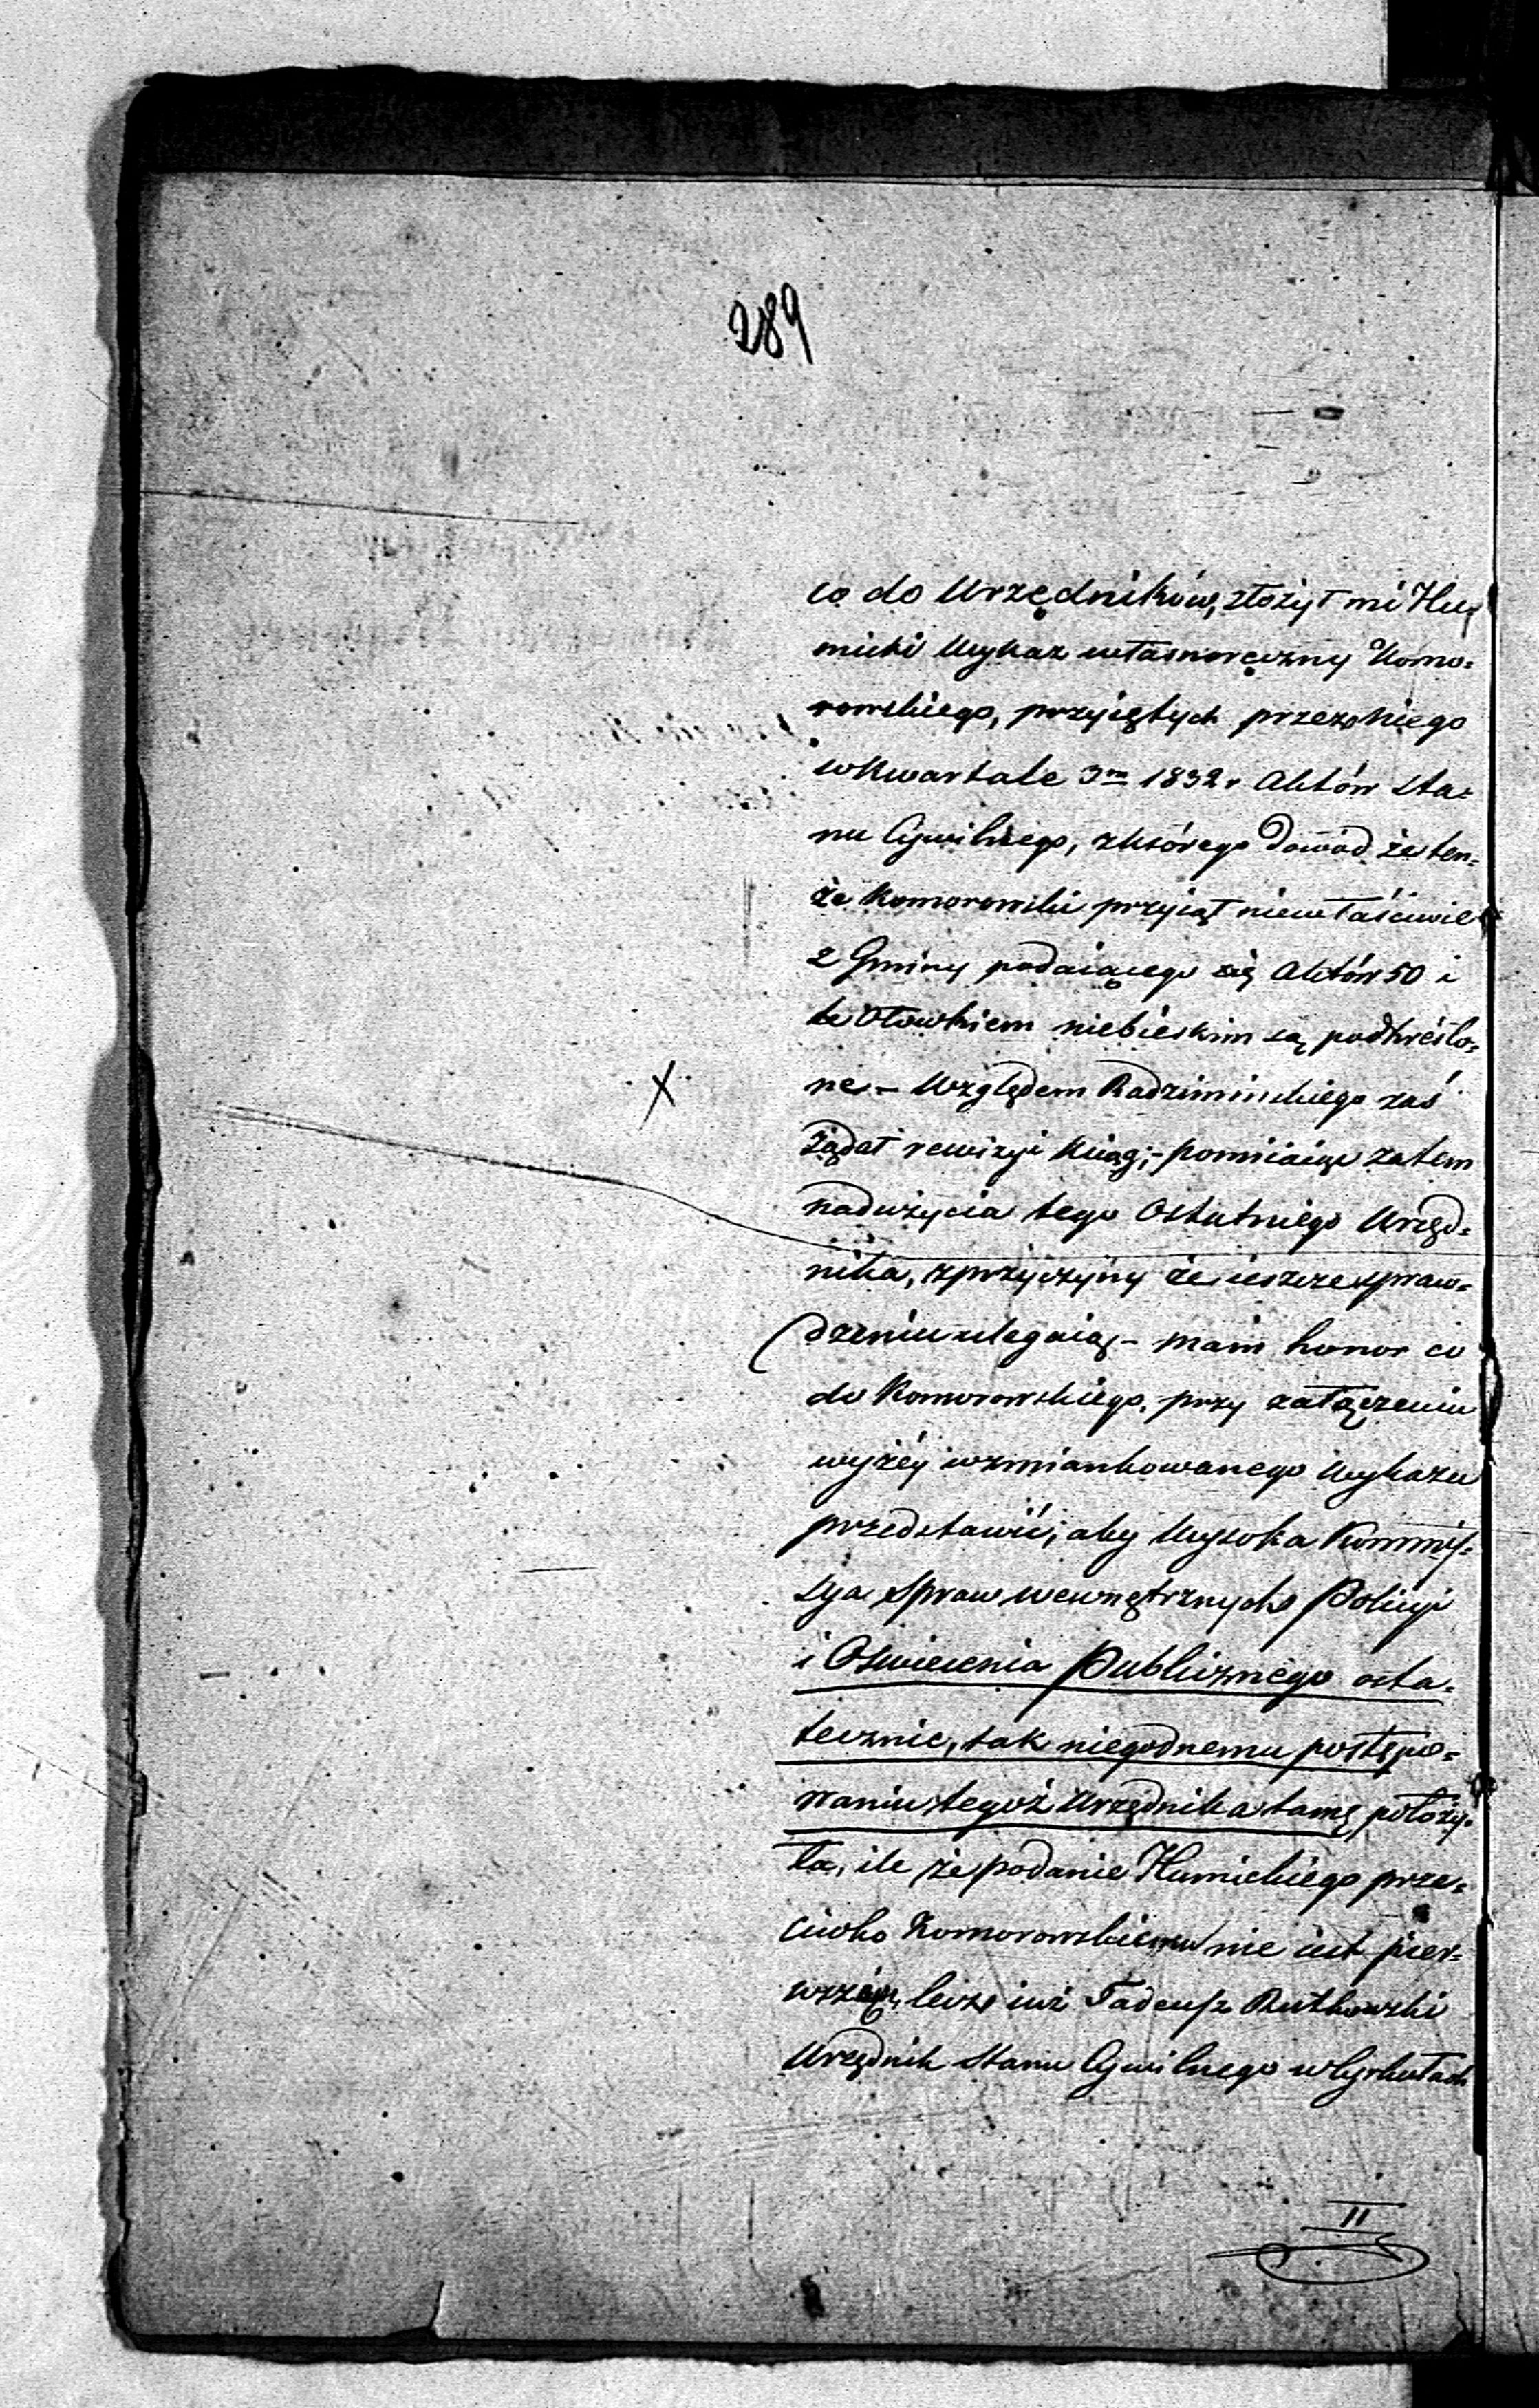 289
co do Urzędników, złożył mi Hu=
micki Wykaz własnoręczny Komo=
rowskiego, przyiętych przez niego
w kwartale 3m 1832 r Aktów Sta=
nu Cywilnego, z którego dowód że ten=
że Komorowski przyiął niewłaściwie
z Gminy podaiącego się Aktów 50 i
te Ołowkiem niebieskim są podkreślo=
ne – Względem Radzimińskiego zaś
X
żądał rewizyi Kiąg; – pomiiaiąc zatem
nadużycia tego Ostatniego Urzęd=
nika, z przyczyny że ieszcze spraw=
dzeniu ulegaią – mam honor co
do Komorowskiego, przy załączeniu
wyżéy wzmiankowanego Wykazu
przedstawić, aby Wysoka Kommis=
sya Spraw Wewnętrznych Policyi
i Oświecenia Publicznego osta=
tecznie, tak niegodnemu postępo=
waniu tegoż Urzędnika tamę położy=
ła, ile że podanie Humickiego prze=
ciwko Komorowskiemu nie iest pier=
wszém, lecz iuż Tadeusz Rutkowski
Urzędnik Stanu Cywilnego w
II